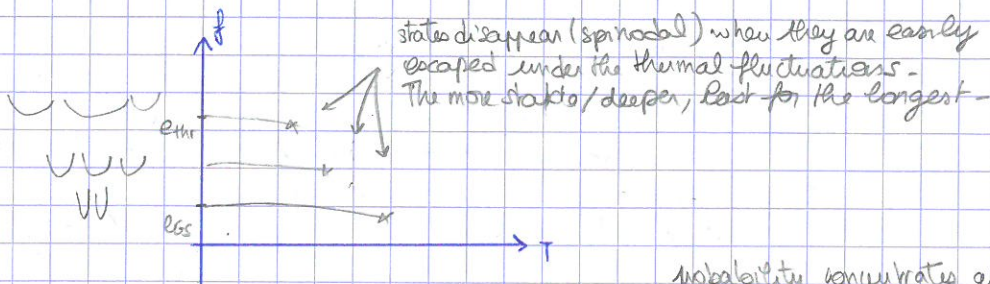 f
states disappear (spinodal) when they are easily
escaped under the thermal fluctuations.
The more stable/deeper, last for the longest.
e_thr
e_GS
T
probability concentrates